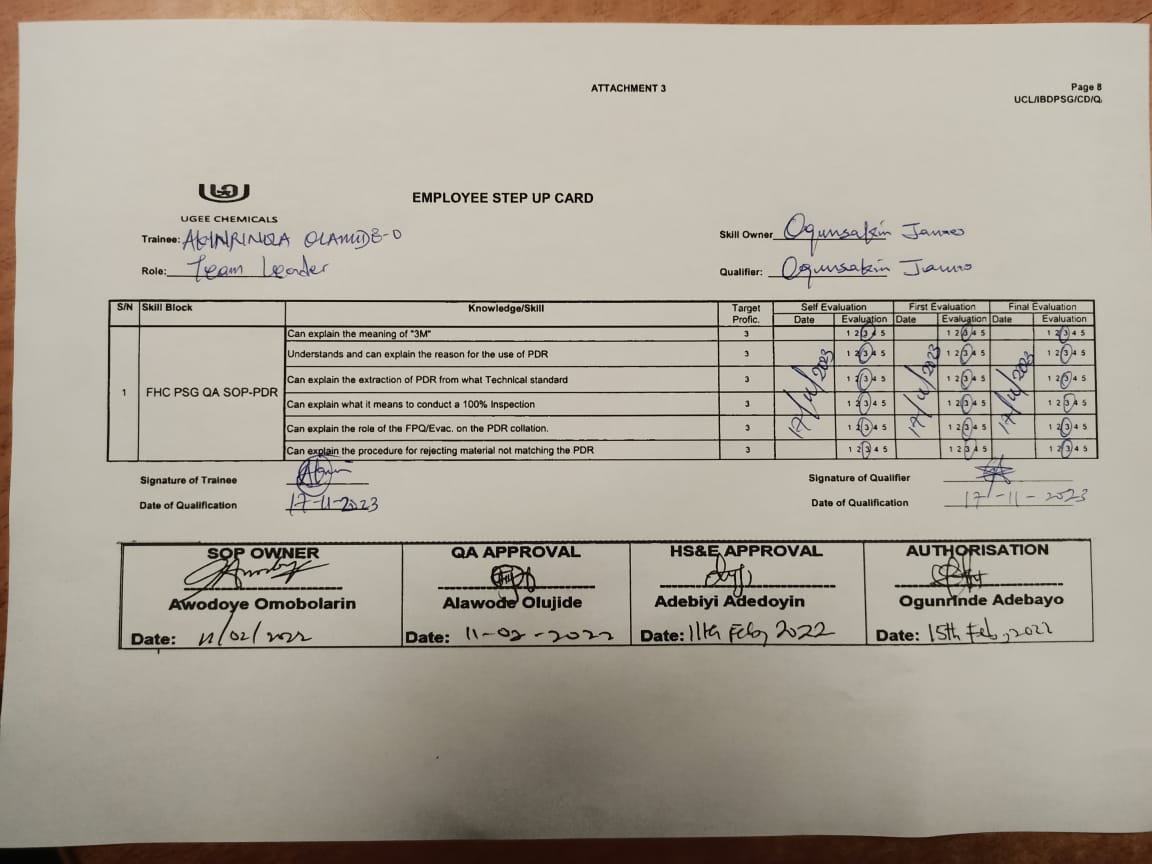 ATTACHMENT 3
Page 8
UCL/IBDPSG/CD/Q
UGEE CHEMICALS
EMPLOYEE STEP UP CARD
Trainee: AKINRINOLA OLAMIDE-O
Skill Owner Ogunsakin James
Role: Team Leader
Qualifier: Ogunsakin James
S/N Skill Block Knowledge/Skill Target Profic. Self Evaluation First Evaluation Final Evaluation
Date Evaluation Date Evaluation Date Evaluation
1 FHC PSG QA SOP-PDR
Can explain the meaning of "3M" 3 1 2 3 4 5 1 2 3 4 5 1 2 3 4 5
Understands and can explain the reason for the use of PDR 3 1 2 3 4 5 1 2 3 4 5 1 2 3 4 5
Can explain the extraction of PDR from what Technical standard 3 1 2 3 4 5 1 2 3 4 5 1 2 3 4 5
Can explain what it means to conduct a 100% Inspection 3 1 2 3 4 5 1 2 3 4 5 1 2 3 4 5
Can explain the role of the FPQ/Evac. on the PDR collation. 3 1 2 3 4 5 1 2 3 4 5 1 2 3 4 5
Can explain the procedure for rejecting material not matching the PDR 3 1 2 3 4 5 1 2 3 4 5 1 2 3 4 5
17/11/2023 17/11/2023 17/11/2023
Signature of Trainee
Signature of Qualifier
Date of Qualification 17-11-2023
Date of Qualification 17-11-2023
SOP OWNER QA APPROVAL HS&E APPROVAL AUTHORISATION
Awodoye Omobolarin Alawode Olujide Adebiyi Adedoyin Ogunrinde Adebayo
Date: 11/02/2022 Date: 11-02-2022 Date: 11th Feb, 2022 Date: 15th Feb, 2022